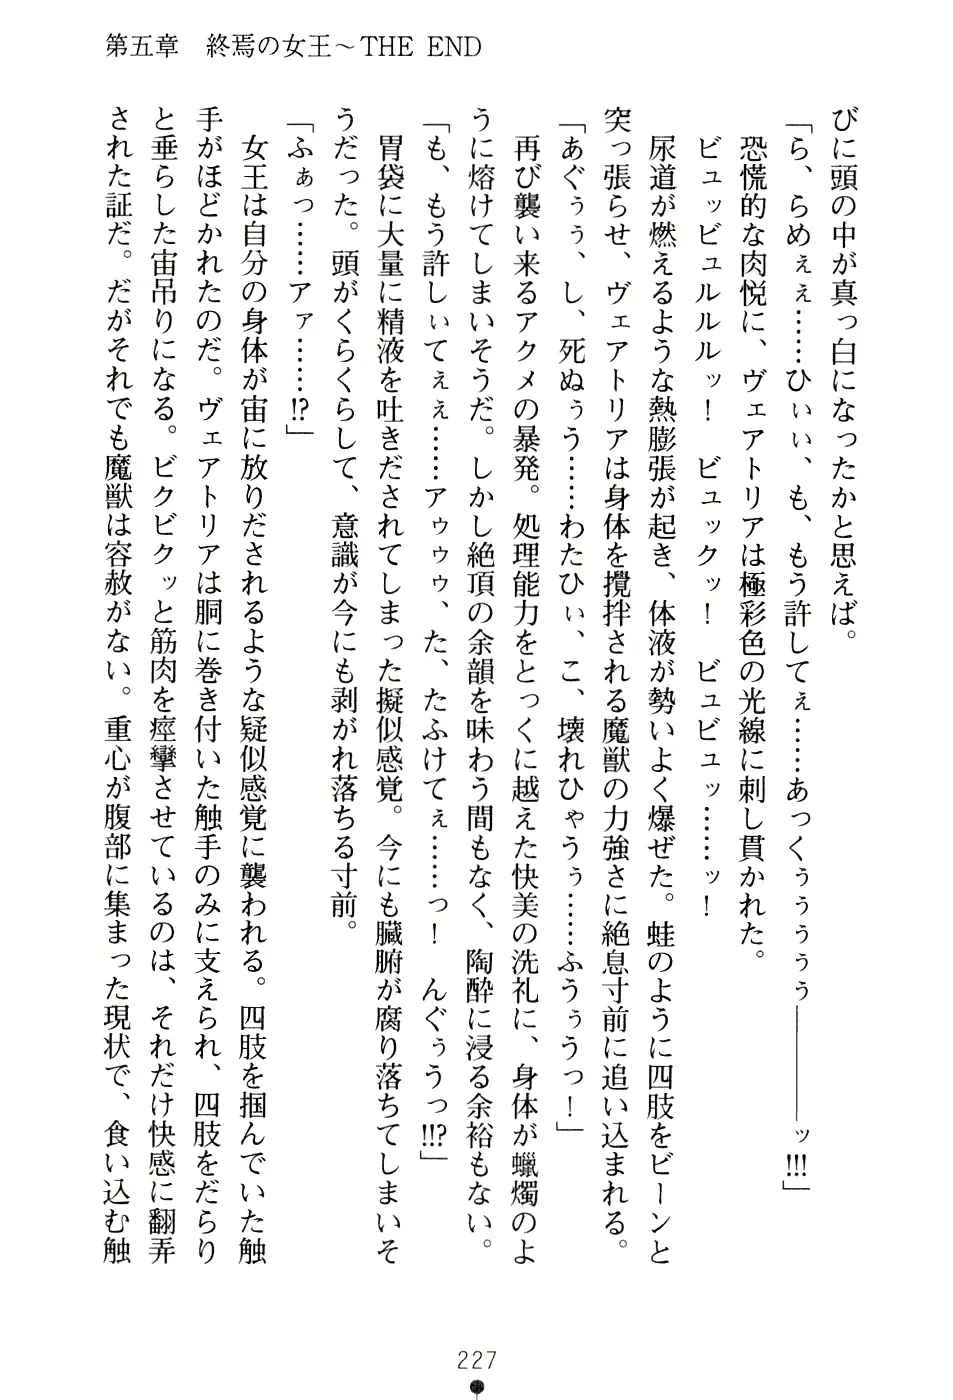 第五章　終焉の女王～THE END
びに頭の中が真っ白になったかと思えば。
「ら、らめぇぇ……ひぃぃ、も、もう許してぇ……あっくぅぅぅぅぅ――――ッ!!!」
恐慌的な肉悦に、ヴェアトリアは極彩色の光線に刺し貫かれた。
ビュッビュルルルッ！　ビュックッ！　ビュビュッ……ッ！
尿道が燃えるような熱膨張が起き、体液が勢いよく爆ぜた。蛙のように四肢をビーンと
突っ張らせ、ヴェアトリアは身体を攪拌される魔獣の力強さに絶息寸前に追い込まれる。
「あぐぅぅ、し、死ぬぅう……わたひぃ、こ、壊れひゃうぅ……ふうぅうっ！」
再び襲い来るアクメの暴発。処理能力をとっくに越えた快美の洗礼に、身体が蠟燭のよ
うに熔けてしまいそうだ。しかし絶頂の余韻を味わう間もなく、陶酔に浸る余裕もない。
「も、もう許しぃてぇぇ……アゥゥゥ、た、たふけてぇ……っ！　んぐぅうっ!!?」
胃袋に大量に精液を吐きだされてしまった擬似感覚。今にも臓腑が腐り落ちてしまいそ
うだった。頭がくらくらして、意識が今にも剥がれ落ちる寸前。
「ふぁっ……アァ……!?」
女王は自分の身体が宙に放りだされるような疑似感覚に襲われる。四肢を掴んでいた触
手がほどかれたのだ。ヴェアトリアは胴に巻き付いた触手のみに支えられ、四肢をだらり
と垂らした宙吊りになる。ビクビクッと筋肉を痙攣させているのは、それだけ快感に翻弄
された証だ。だがそれでも魔獣は容赦がない。重心が腹部に集まった現状で、食い込む触
227